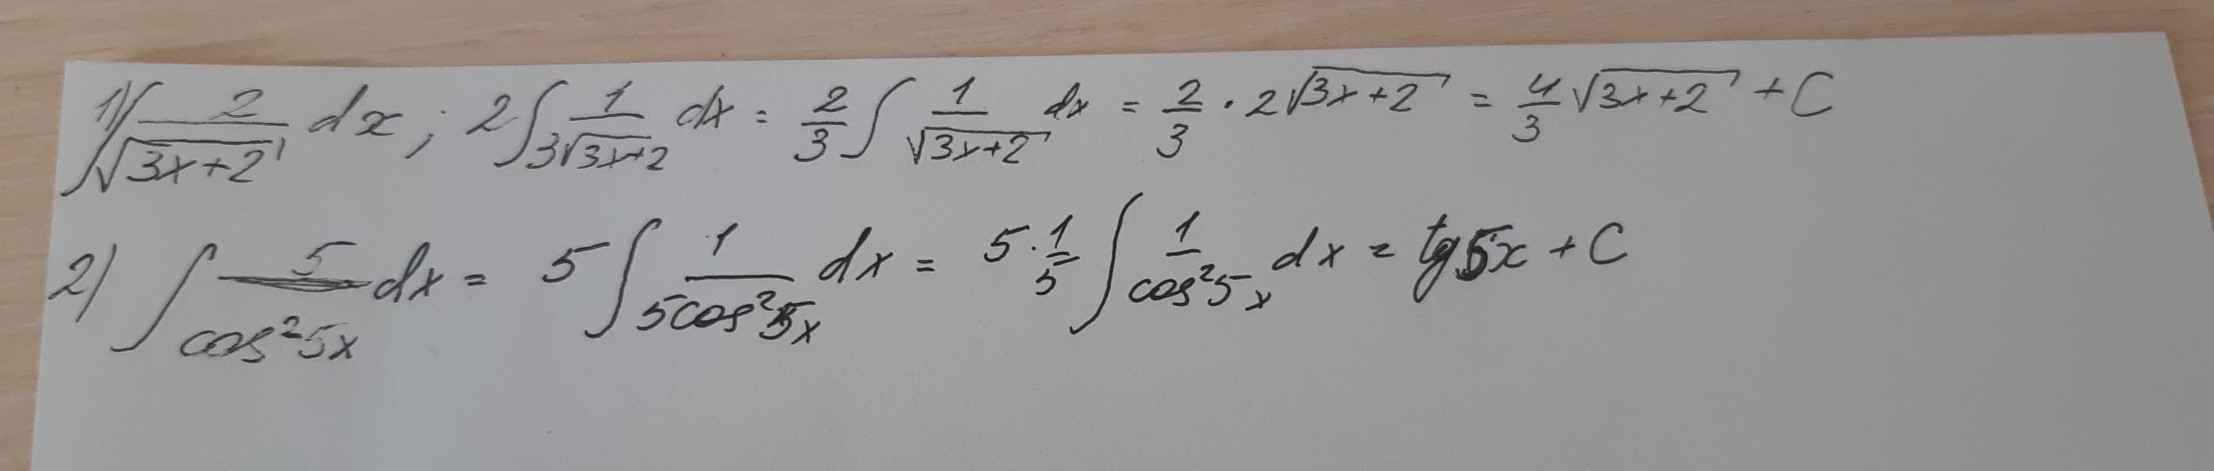 1) ∫ 2/√(3x+2) dx ; 2∫ 1/(3√(3x+2)) dx = 2/3 ∫ 1/√(3x+2) dx = 2/3 · 2√(3x+2) = 4/3 √(3x+2) + C
2) ∫ 5/cos²5x dx = 5 ∫ 1/(5cos²5x) dx = 5 · 1/5 ∫ 1/cos²5x dx = tg5x + C